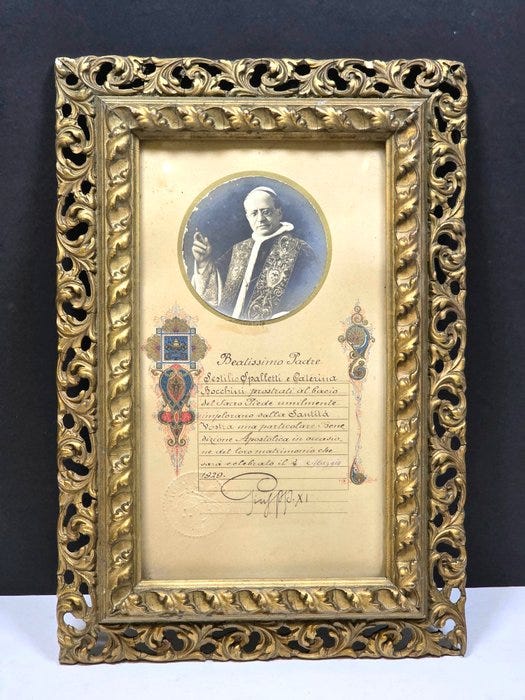 Beatissimo Padre
Sestilio Spalletti e Caterina
Bocchini, prostrati al bacio
del Sacro Piede umilmente
implorano dalla Santità
Vostra una particolare Bene
dizione Apostolica in occasio
ne del loro matrimonio che
sarà celebrato il Maggio
1929.
Pius PP. XI